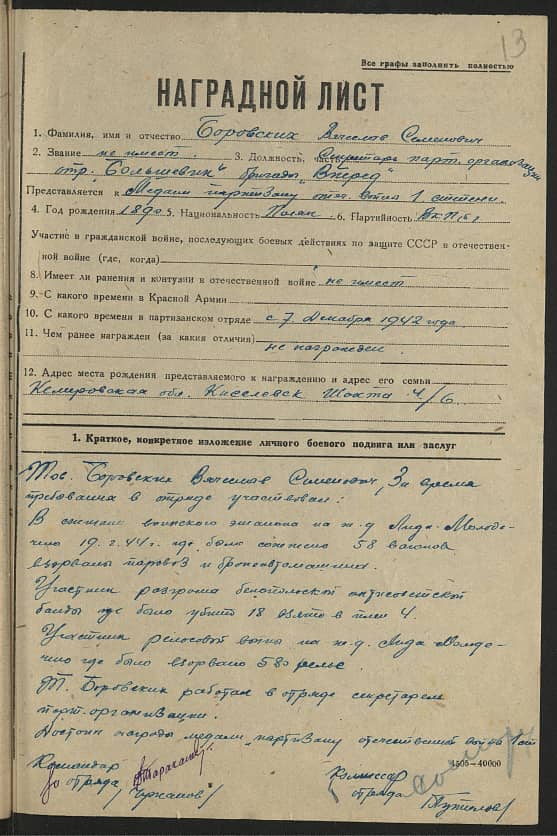 13
Все графы заполнить полностью
НАГРАДНОЙ ЛИСТ
1. Фамилия, имя и отчество Боровских Вячеслав Семенович
2. Звание не имеет 3. Должность, часть Секретарь парт. организации
отр. "Большевик" бригады "Вперед"
Представляется к Медали партизану отеч. войны 1 степени.
4. Год рождения 1890 5. Национальность Поляк 6. Партийность ВКП(б)
Участие в гражданской войне, последующих боевых действиях по защите СССР в отечествен-
ной войне (где, когда)
8. Имеет ли ранения и контузии в отечественной войне не имеет
9. С какого времени в Красной Армии
10. С какого времени в партизанском отряде с 7 декабря 1942 года
11. Чем ранее награжден (за какия отличия) не награжден.
12. Адрес места рождения представляемого к награждению и адрес его семьи
Кемировская обл. Киселевск Шахта 4/6
1. Краткое, конкретное изложение личного боевого подвига или заслуг
Тов. Боровских Вячеслав Семенович, За время
требования в отряде участвовал:
В сжении воинского эшалона на ж.д Лида-Молоде-
чно 19 г. 44 г. где было сожжено 58 вагонов
взорваны паровоз и бронеавтомашина.
Участник разгрома белопольской антисоветской
банды где было убито 18 взято в плен 4.
Участник релосовой войны на ж.д. Лида Молоде-
чно где было взорвано 580 рельс.
Т. Боровских работал в отряде секретарем
парт. организации.
Достоин награды медали "партизану отечественной война 1 ст
4505—40000
Командир
отряда
Комиссар
отряда